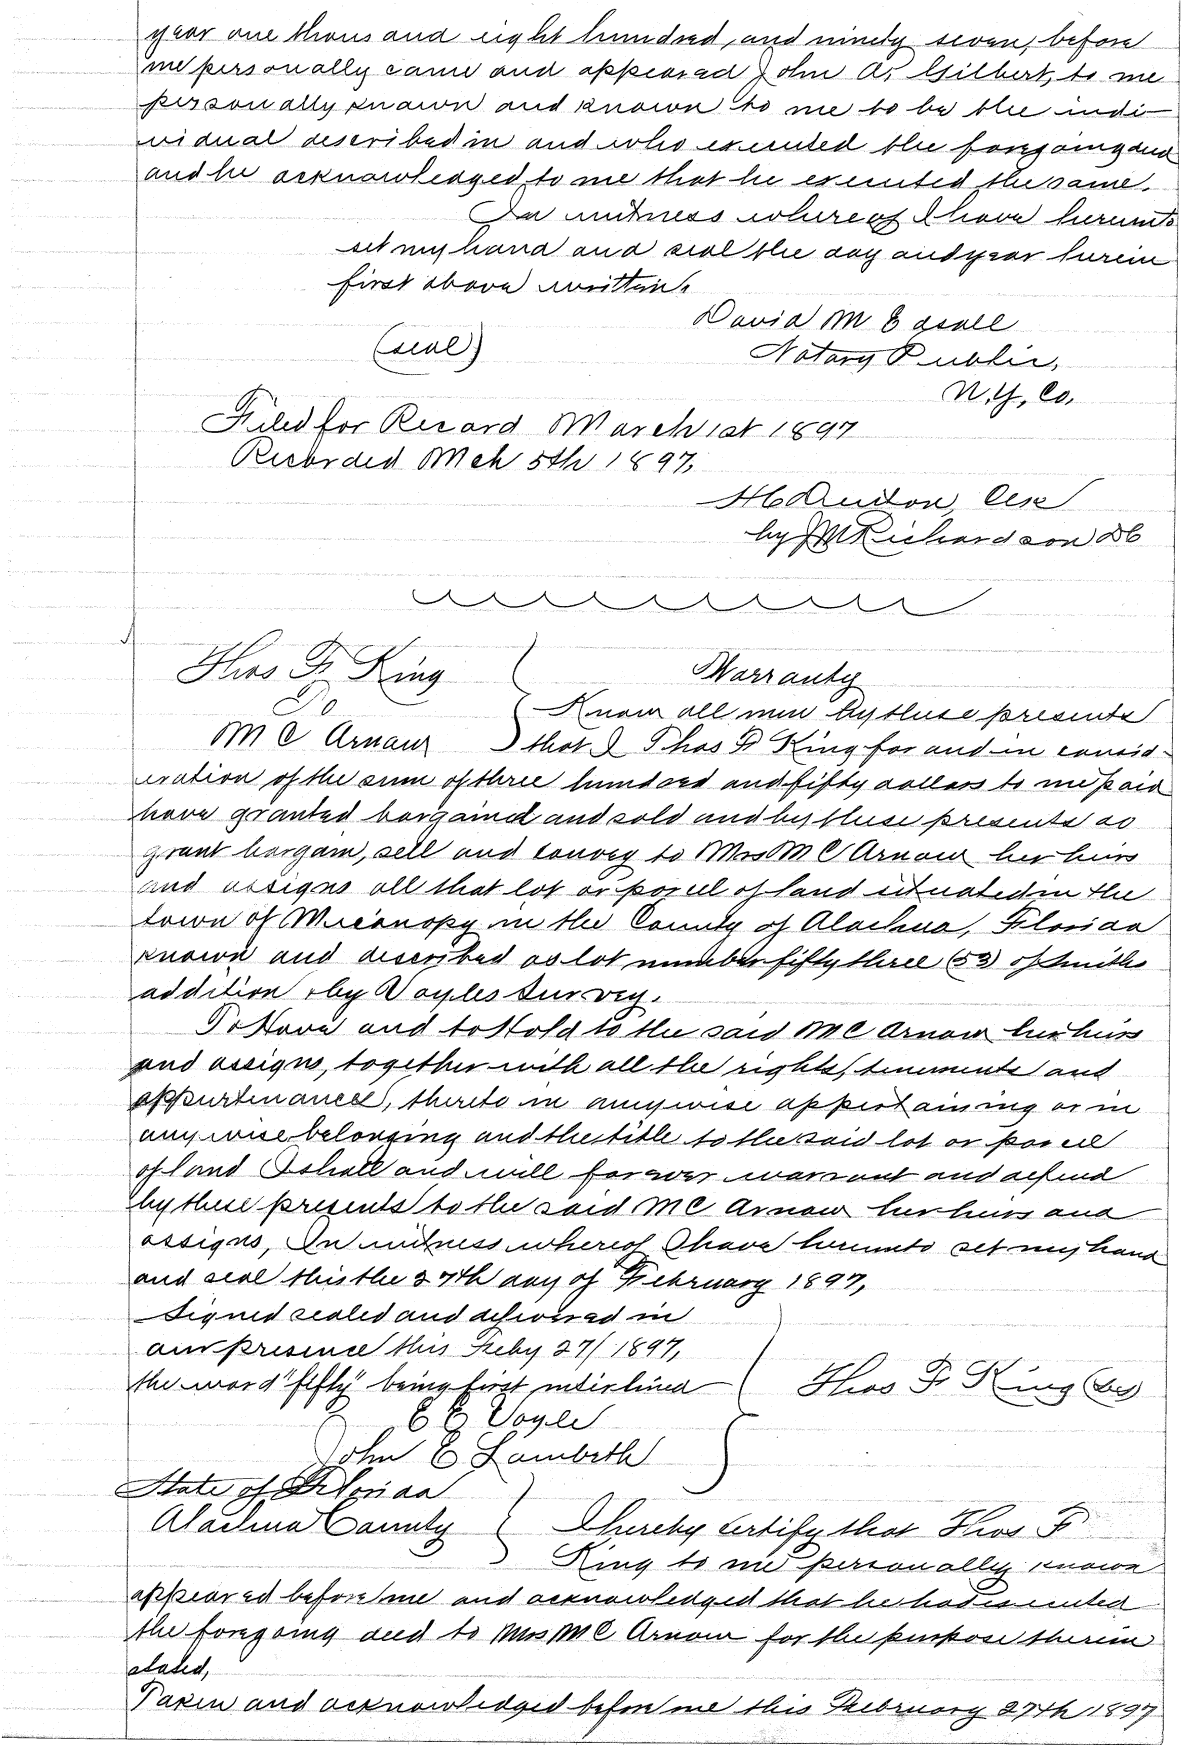 year one thousand eight hundred, and ninety seven, before
me personally came and appeared John A. Gilbert, to me
personally known and known to me to be the indi-
vidual described in and who executed the foregoing deed
and he acknowledged to me that he executed the same.
In witness whereof I have hereunto
set my hand and seal the day and year herein
first above written.
David M
(seal)
Notary Public,
N.Y. Co.
Filed for Record March 1st 1897
Recorded Mch 5th 1897,
Clk
by JM Richardson DC
Thos F. King
To
M C Arnow
Warranty
Know all men by these presents
that I Thos F King for and in consid-
eration of the sum of three hundred and fifty dollars to me paid
have granted bargaind and sold and by these presents do
grant bargain, sell and convey to Mrs M C Arnow her heirs
and assigns all that lot or parcel of land situated in the
town of Micanopy in the County of Alachua, Florida
known and described as lot number fifty three (53) of Smiths
addition by Voyles Survey.
To Have and to Hold to the said M C Arnow her heirs
and assigns, together with all the rights, tenements and
appurtenances, thereto in anywise appertaining or in
anywise belonging and the title to the said lot or parcel
of land I shall and will forever warrant and defend
by these presents to the said M C Arnow her heirs and
assigns, In witness whereof I have hereunto set my hand
and seal this the 27th day of February 1897,
Signed sealed and delivered in
our presence this Feby 27/1897,
the word "fifty" being first interlined
Thos F. King
E E Voyle
John E Lambeth
State of Florida
Alachua County
I hereby certify that Thos F
King to me personally known
appeared before me and acknowledged that he had executed
the foregoing deed to Mrs M C Arnow for the purpose therein
stated,
Taken and acknowledged before me this February 27th 1897